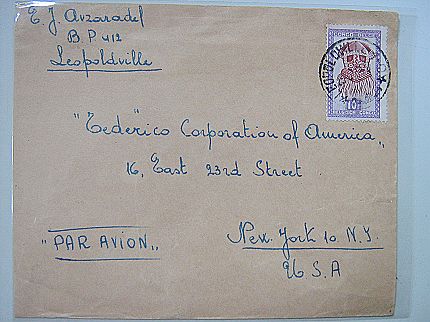 E. J. Avzaradel
B P 412
Leopoldville
CONGO BELGE
LEOPOLDVILLE
10F
BELGISCH CONGO
"Federico Corporation of America„
16, East 23rd Street
"PAR AVION„
New. York 10 N.Y.
U S A